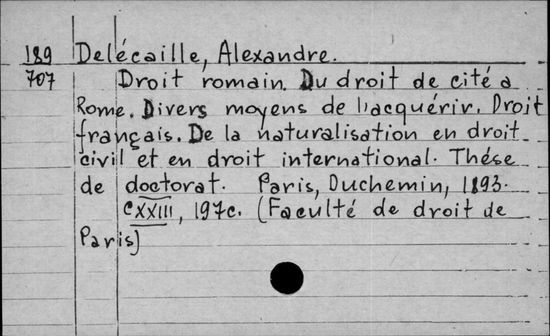 189 Delécaille, Alexandre.
707 Droit romain. Du droit de cité a
Rome. Divers moyens de l'acquérir. Droit
français. De la naturalisation en droit
civil et en droit international. Thése
de doctorat. Paris, Duchemin, 1893.
CXXIII, 197c. (Faculté de droit de
Paris)